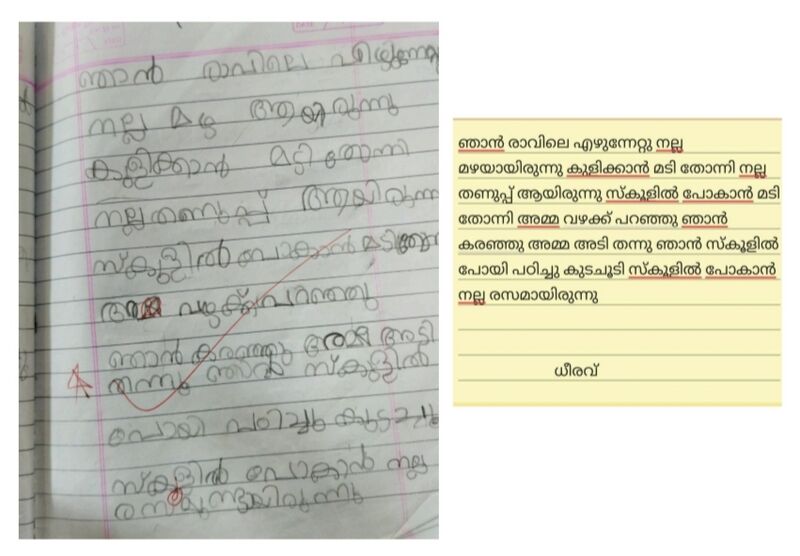 ഞാൻ രാവിലെ എഴുന്നേറ്റു
നല്ല മഴ ആയിരുന്നു
കുളിക്കാൻ മടി തോന്നി
നല്ല തണുപ്പ് ആയിരുന്ന
സ്കൂളിൽ പോകാൻ മടി
അമ്മ വഴക്ക് പറഞ്ഞു
ഞാൻ കരഞ്ഞു അമ്മ അടി
തന്നു ഞാൻ സ്കൂളിൽ
പോയി പഠിച്ചു
സ്കൂളിൽ പോകാൻ നല്ല
ഞാൻ രാവിലെ എഴുന്നേറ്റു നല്ല
മഴയായിരുന്നു കുളിക്കാൻ മടി തോന്നി നല്ല
തണുപ്പ് ആയിരുന്നു സ്കൂളിൽ പോകാൻ മടി
തോന്നി അമ്മ വഴക്ക് പറഞ്ഞു ഞാൻ
കരഞ്ഞു അമ്മ അടി തന്നു ഞാൻ സ്കൂളിൽ
പോയി പഠിച്ചു കുടചൂടി സ്കൂളിൽ പോകാൻ
നല്ല രസമായിരുന്നു
ധീരവ്